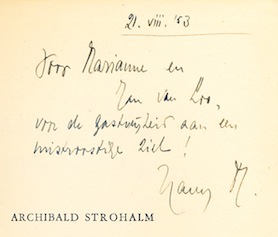 21. viii. '53
Voor Marianne en
Jan van Loo,
voor de gastvrijheid aan een
mistroostige ziel!
Harry M.
ARCHIBALD STROHALM